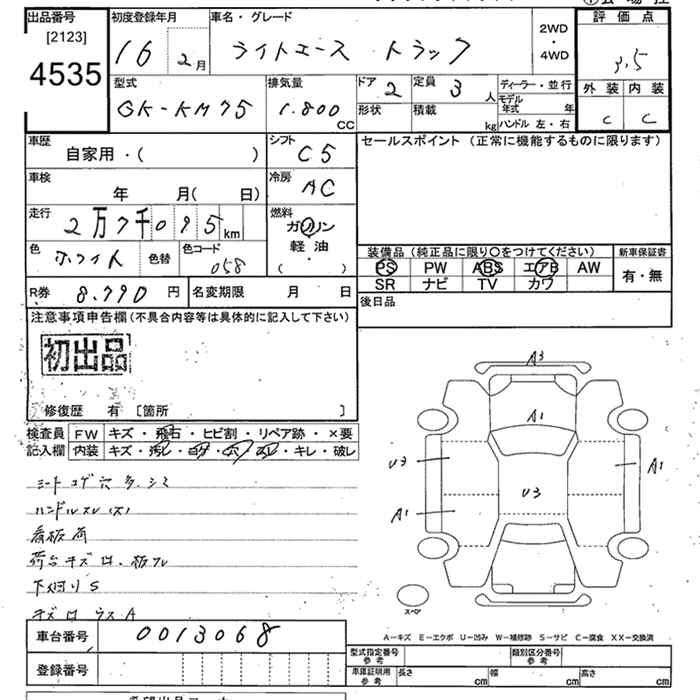 出品番号
[2123]
4535
初度登録年月
16 2月
車名・グレード
ライトエース トラック
2WD
・
4WD
評価点
3.5
外装 内装
C C
型式
GK-KM75
排気量
1.800
CC
ドア
2
定員
3 人
形状
積載
kg
ディーラー・並行
モデル年式 年
ハンドル 左・右
車歴
自家用・( )
シフト
C5
車検
年 月( 日)
冷房
AC
走行
2万7千095km
燃料
ガソリン
軽油
( ・ )
色
ホワイト
色替
色コード
058
R券 8.790 円
名変期限 月 日
セールスポイント (正常に機能するものに限ります)
装備品 (純正品に限り○をつけてください)
PS PW ABS エアB AW
SR ナビ TV カワ
新車保証書
有・無
後日品
注意事項申告欄(不具合内容等は具体的に記入して下さい)
初出品
修復歴 有 [箇所 ]
検査員
記入欄
FW キズ・飛石・ヒビ割・リペア跡・×要
内装 キズ・汚レ・コゲ・穴・スレ・キレ・破レ
シートコゲ穴多、シミ
ハンドルスレ(大)
看板有
下廻りS
A3
A1
U3
U3
A1
A1
スペア
A－キズ E－エクボ U－凹み W－補修跡 S－サビ C－腐食 XX－交換済
車台番号 0013068
登録番号
型式指定番号
参考
類別区分番号
参考
車庫証明用
参考
長さ cm
幅 cm
高さ cm